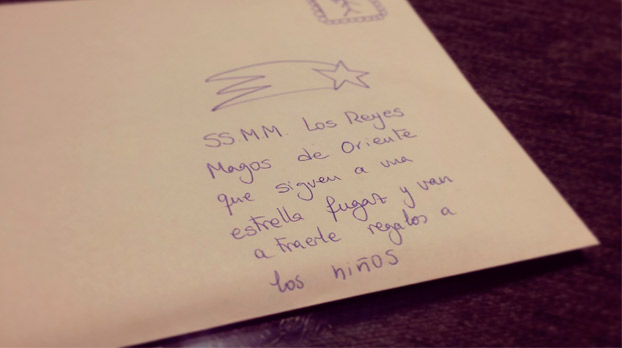 SS.MM. Los Reyes
Magos de Oriente
que siguen a una
estrella fugaz y van
a traerle regalos a
los niños